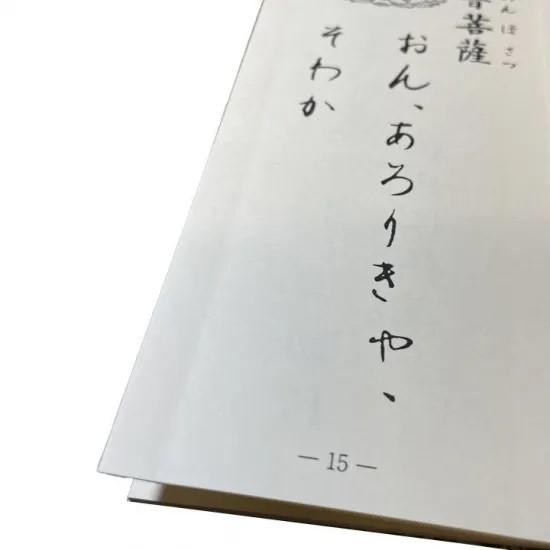 音菩薩
んぼさつ
おん、あろりきや、
そわか
— 15 —